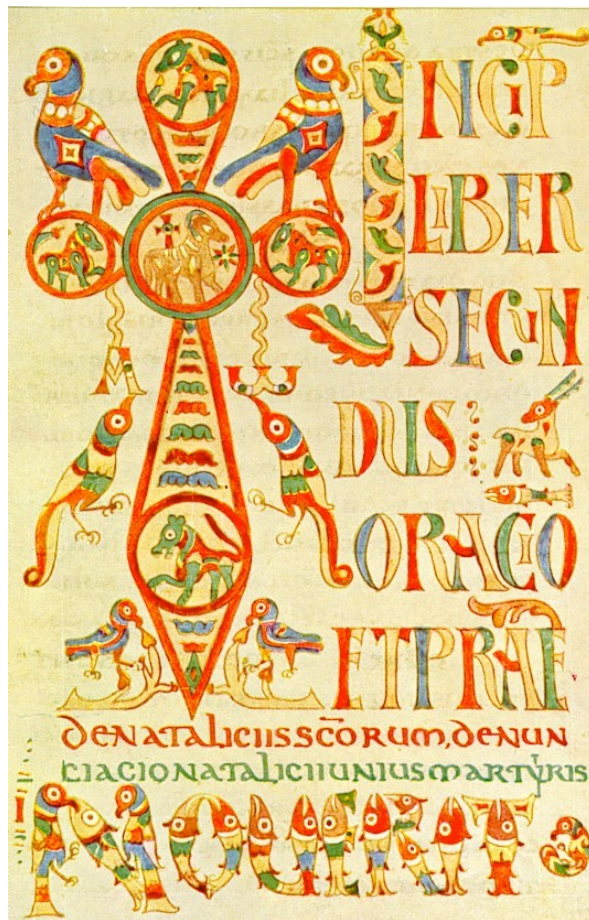 A ω
INCIP
LIBER
SECUN
DUS
ORACIO
ET PRAE
de nataliciis scōrum, denun
ciacio natalicii unius martyris
NOUERIT